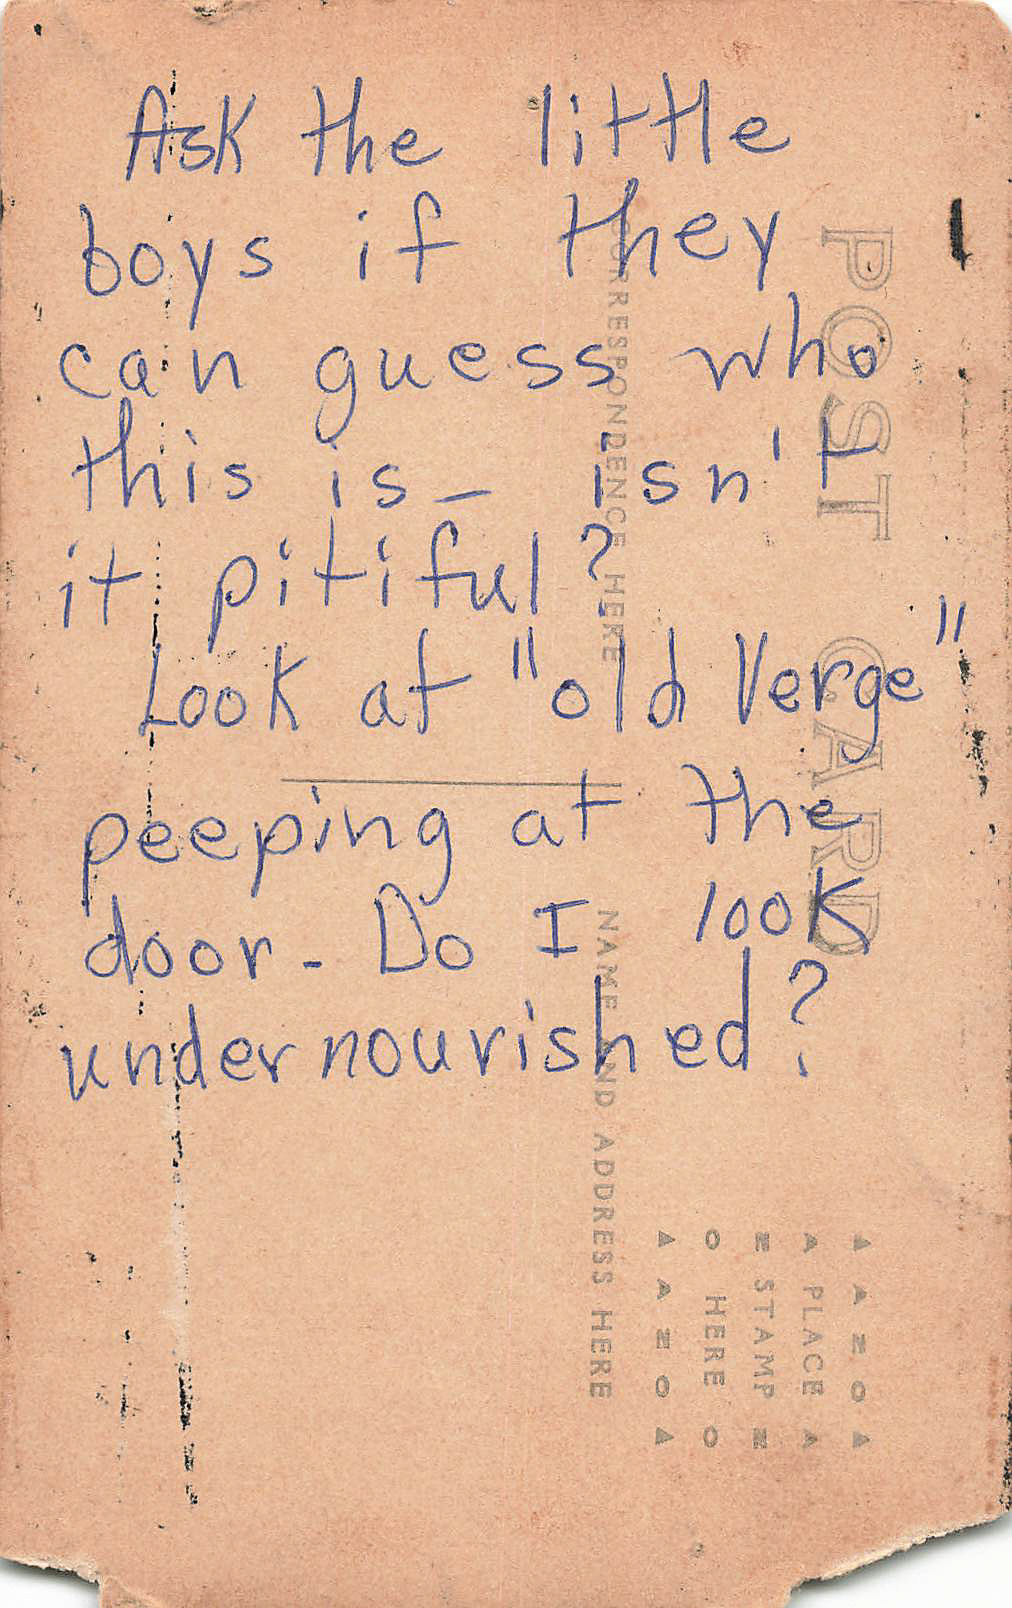 Ask the little
boys if they
can guess who
this is – isn't
it pitiful?
Look at "old Verge"
peeping at the
door - Do I look
undernourished?
POST CARD
CORRESPONDENCE HERE
NAME AND ADDRESS HERE
AZOA
A PLACE A
Z STAMP Z
O HERE O
AAZOA